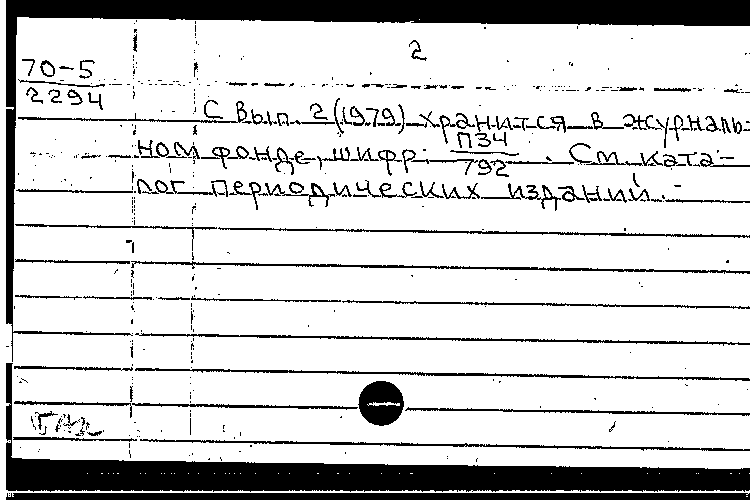 2
70-5
2294
С Вып. 2 (1979) хранится в журналь-
ном фонде, шифр: ПЗ4
792 . См. ката-
лог периодических изданий.-